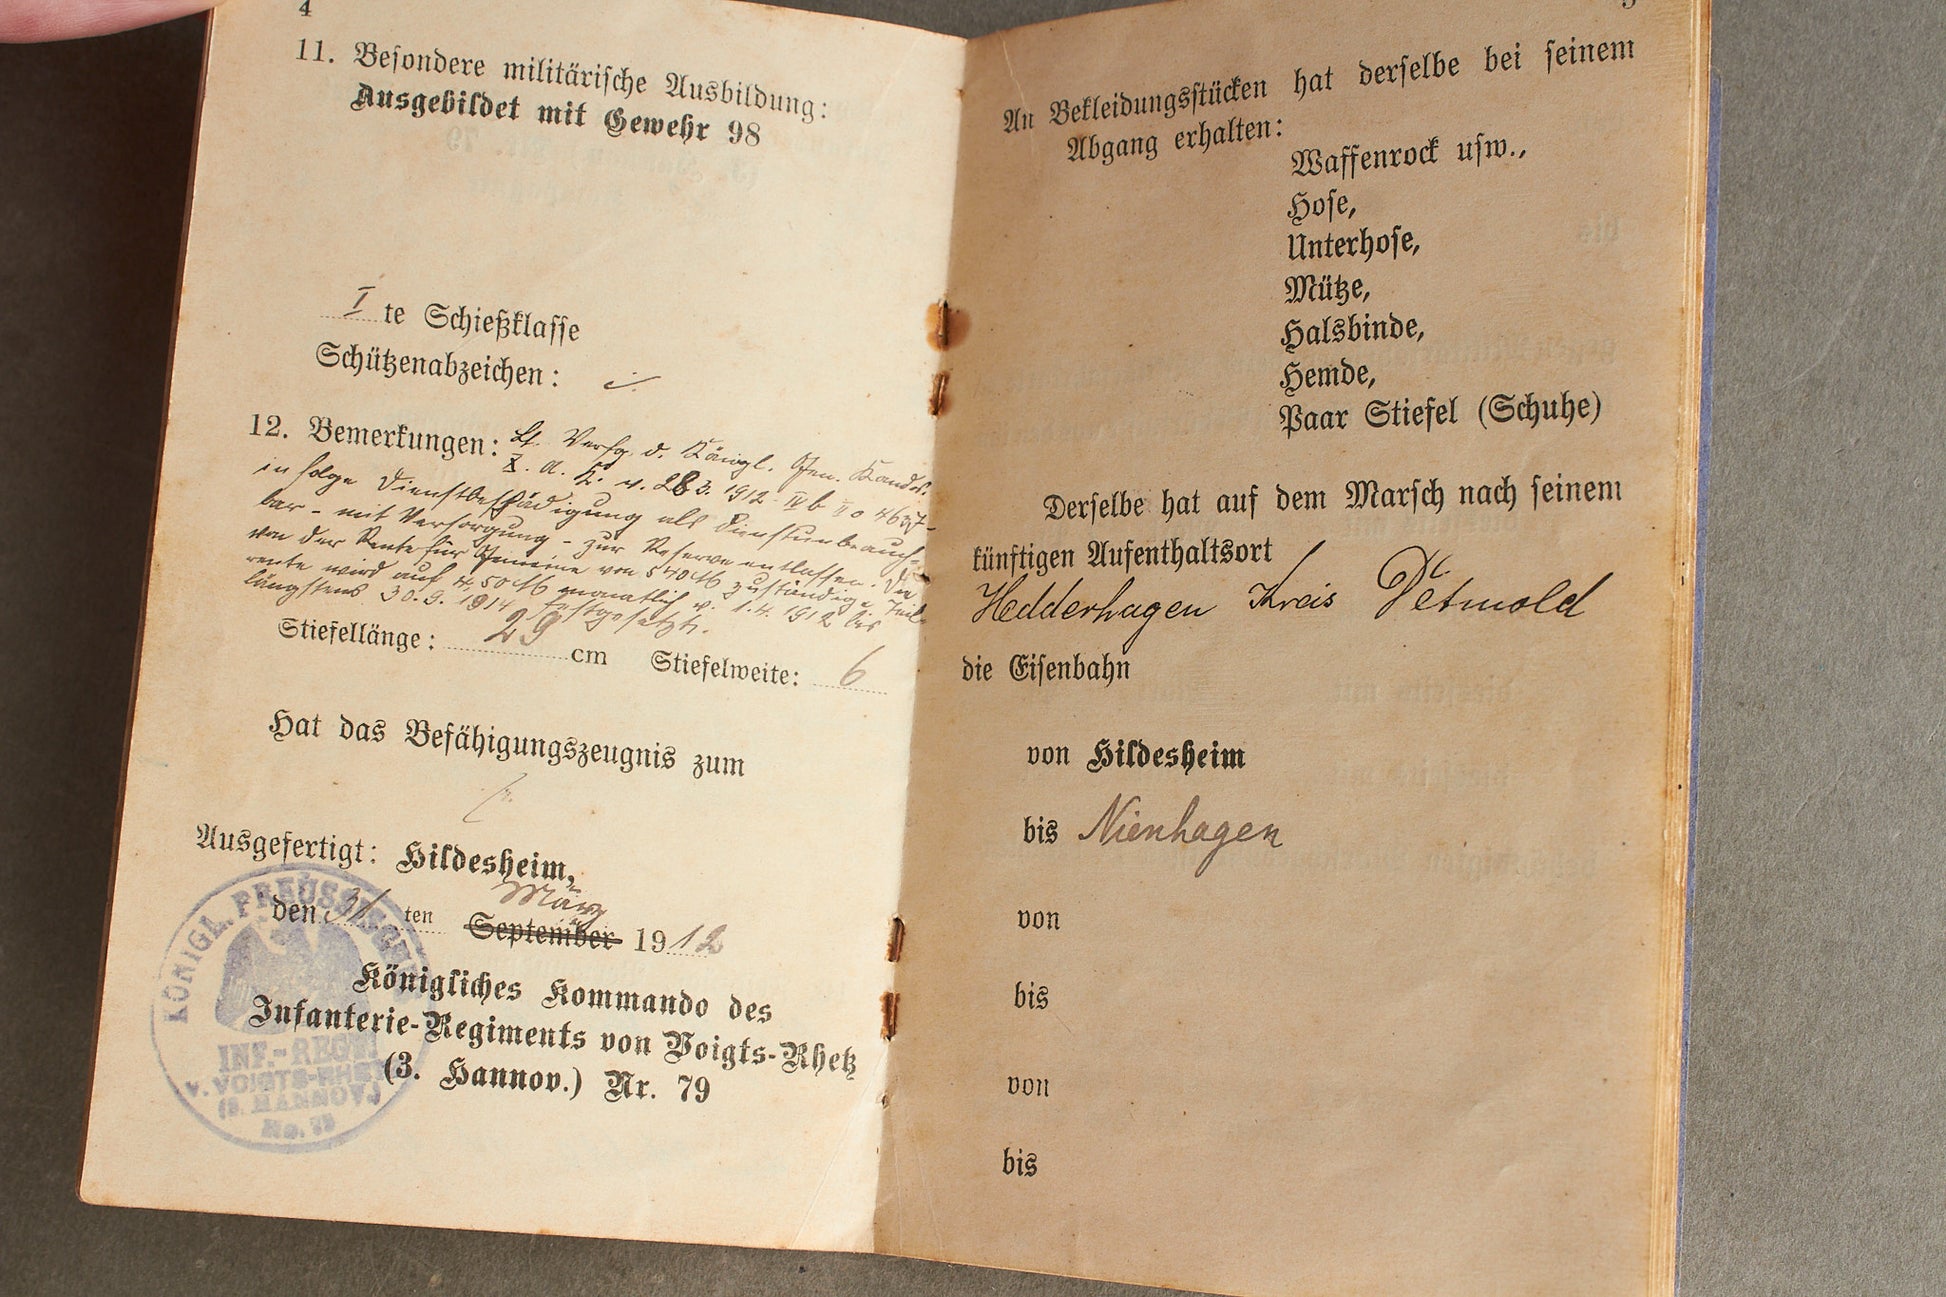 4
11. Besondere militärische Ausbildung:
Ausgebildet mit Gewehr 98
I te Schießklasse
Schützenabzeichen:
12. Bemerkungen: Lt. Verfg. d. Königl. Gen. Kandos.
X. A. K. v. 28.3. 1912 - IVb
infolge Dienstbeschädigung als dienstunbrauch-
bar - mit Versorgung - zur Reserve entlassen. Die
von der Rente für Gemeine von 540 M zuständige Teil-
rente wird auf 4,50 M monatlich v. 1.4. 1912 bis
längstens 30.9.1914 festgesetzt.
Stiefellänge: 29 cm Stiefelweite: 6
Hat das Befähigungszeugnis zum
Ausgefertigt: Hildesheim,
März
den 31 ten September 1912
Königliches Kommando des
Infanterie-Regiments von Voigts-Rhetz
(3. Hannov.) Nr. 79
KÖNIGL. PREUSSISCHES
INF.-REGT.
v. VOIGTS-RHETZ
(3. HANNOV.)
No. 79
5
An Bekleidungsstücken hat derselbe bei seinem
Abgang erhalten:
Waffenrock usw.,
Hose,
Unterhose,
Mütze,
Halsbinde,
Hemde,
Paar Stiefel (Schuhe)
Derselbe hat auf dem Marsch nach seinem
künftigen Aufenthaltsort
Hedderhagen Kreis Detmold
die Eisenbahn
von Hildesheim
bis Nienhagen
von
bis
von
bis